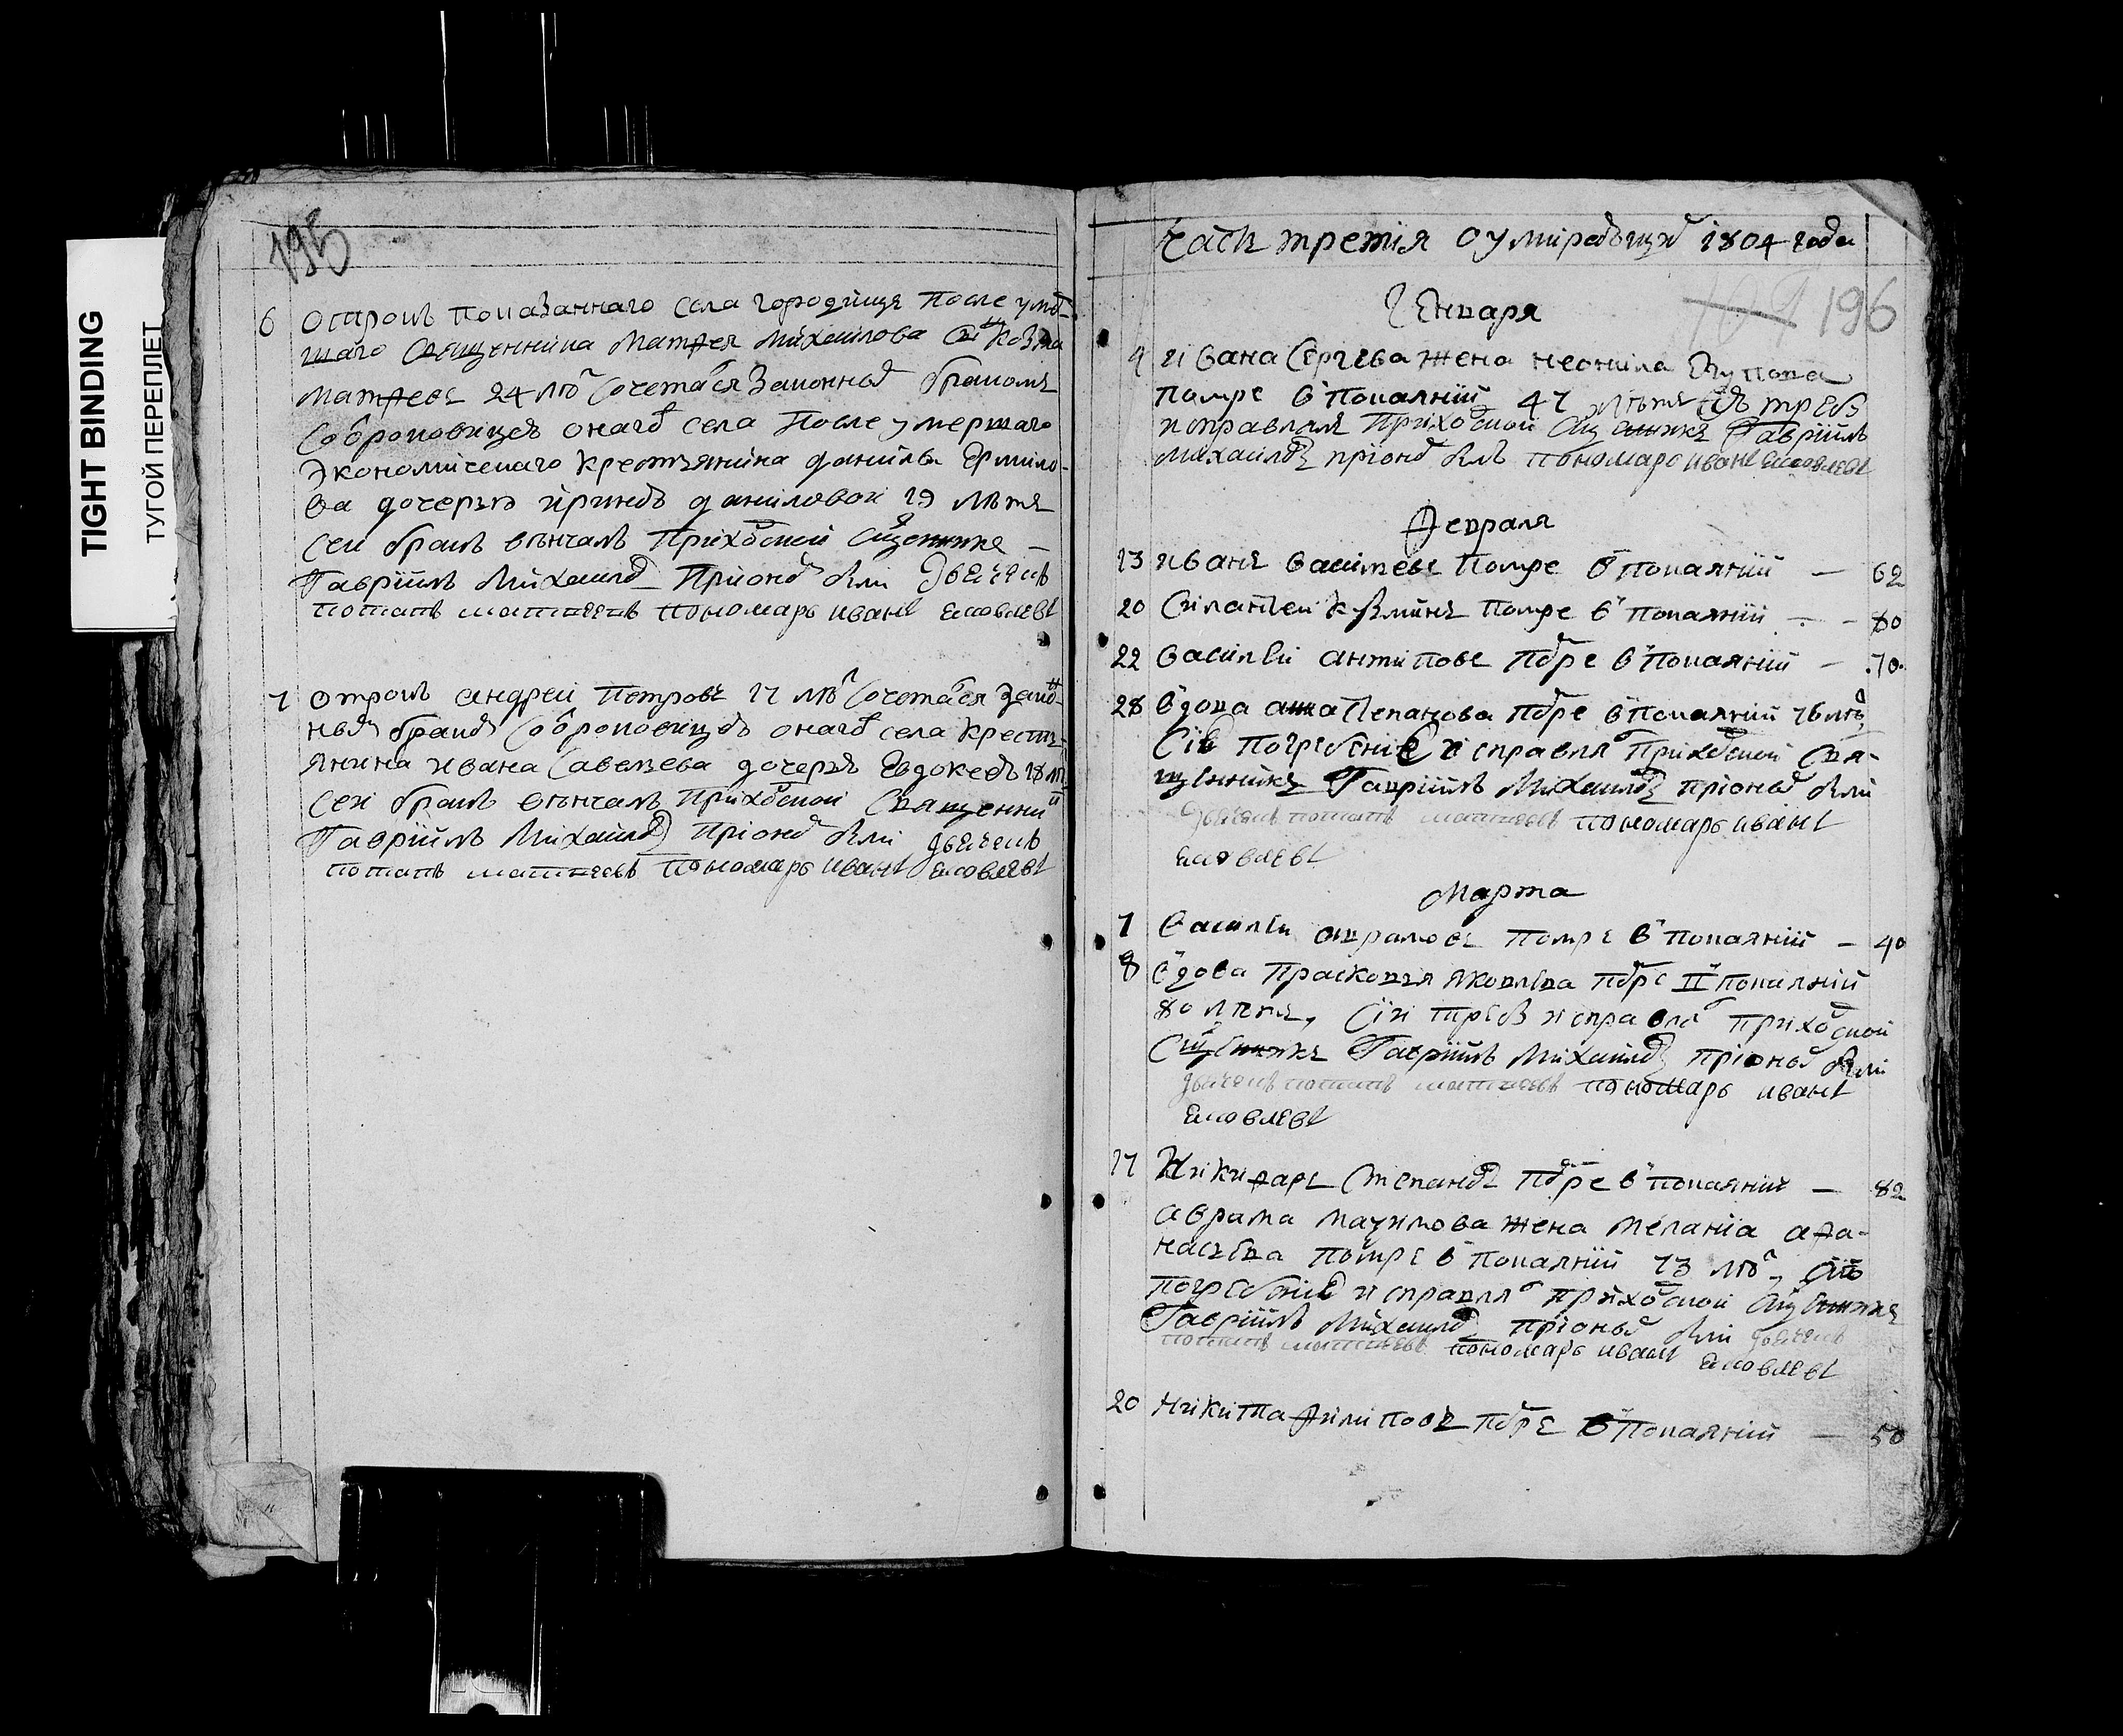 TIGHT BINDING
ТУГОЙ ПЕРЕПЛЕТ
195
6 отрокъ показаннаго села городища после умер-
шаго священника Матфея Михаилова сынъ Козма
Матфеевъ 24 лѣтъ сочетася законнымъ бракомъ
со отроковицею онагѡ села после умершаго
Экономическаго крестьянина данила Ермило-
ва дочерью ириною даниловой 19 лѣтъ
сей бракъ вѣнчалъ Приходской священникъ
Гаврїилъ Михаиловъ При ономъ были дьячекъ
потапъ матвеевъ пономарь иванъ яковлевъ
7 отрокъ андрей Петровъ 17 лѣтъ сочетася закон-
нымъ бракомъ со отроковицею онагѡ села крестья-
янина ивана Савельева дочерью Евдокеею 18 лѣтъ
сей бракъ вѣнчалъ Приходской Священникъ
Гаврїилъ Михаиловъ При ономъ были дьячекъ
потапъ матвеевъ пономарь иванъ яковлевъ
Часть третїя о умирающихъ 1804 года
196
Генваря
ивана Сергеева жена неонила
помре в покаянїи 47 лѣтъ сїю требу
исправлялъ Приходской священникъ Гаврїилъ
Михаиловъ при ономъ былъ пономарь иванъ яковлевъ
Февраля
13 иванъ васильевъ помре в покаянїи — 62
20 Силантей Кузминъ помре в покаянїи — 80
22 василей антиповъ помре в покаянїи — 70
28 вдова анна степанова помре в покаянїи 76 лѣтъ,
Сїе погребенїе исправлялъ Приходской Свя-
щенникъ Гаврїилъ Михаиловъ при ономъ были
дьячекъ потапъ матвеевъ пономарь иванъ
яковлевъ
Марта
7 василей аврамовъ помре в покаянїи — 40
8 вдова Прасковья яковлева помре в покаянїи
80 лѣтъ, Сїи требы исправлялъ приходской
Священникъ Гаврїилъ Михаиловъ при ономъ были
дьячекъ потапъ матвеевъ пономарь иванъ
яковлевъ
17 Никифоръ Степановъ помре в покаянїи — 82
аврама максимова жена меланїа афа-
насьева помре в покаянїи 73 лѣтъ, сїе
погребенїе исправлялъ приходской священникъ
Гаврїилъ Михаиловъ при ономъ были дьячекъ
потапъ матвеевъ пономарь иванъ яковлевъ
20 никита филиповъ помре в покаянїи — 50